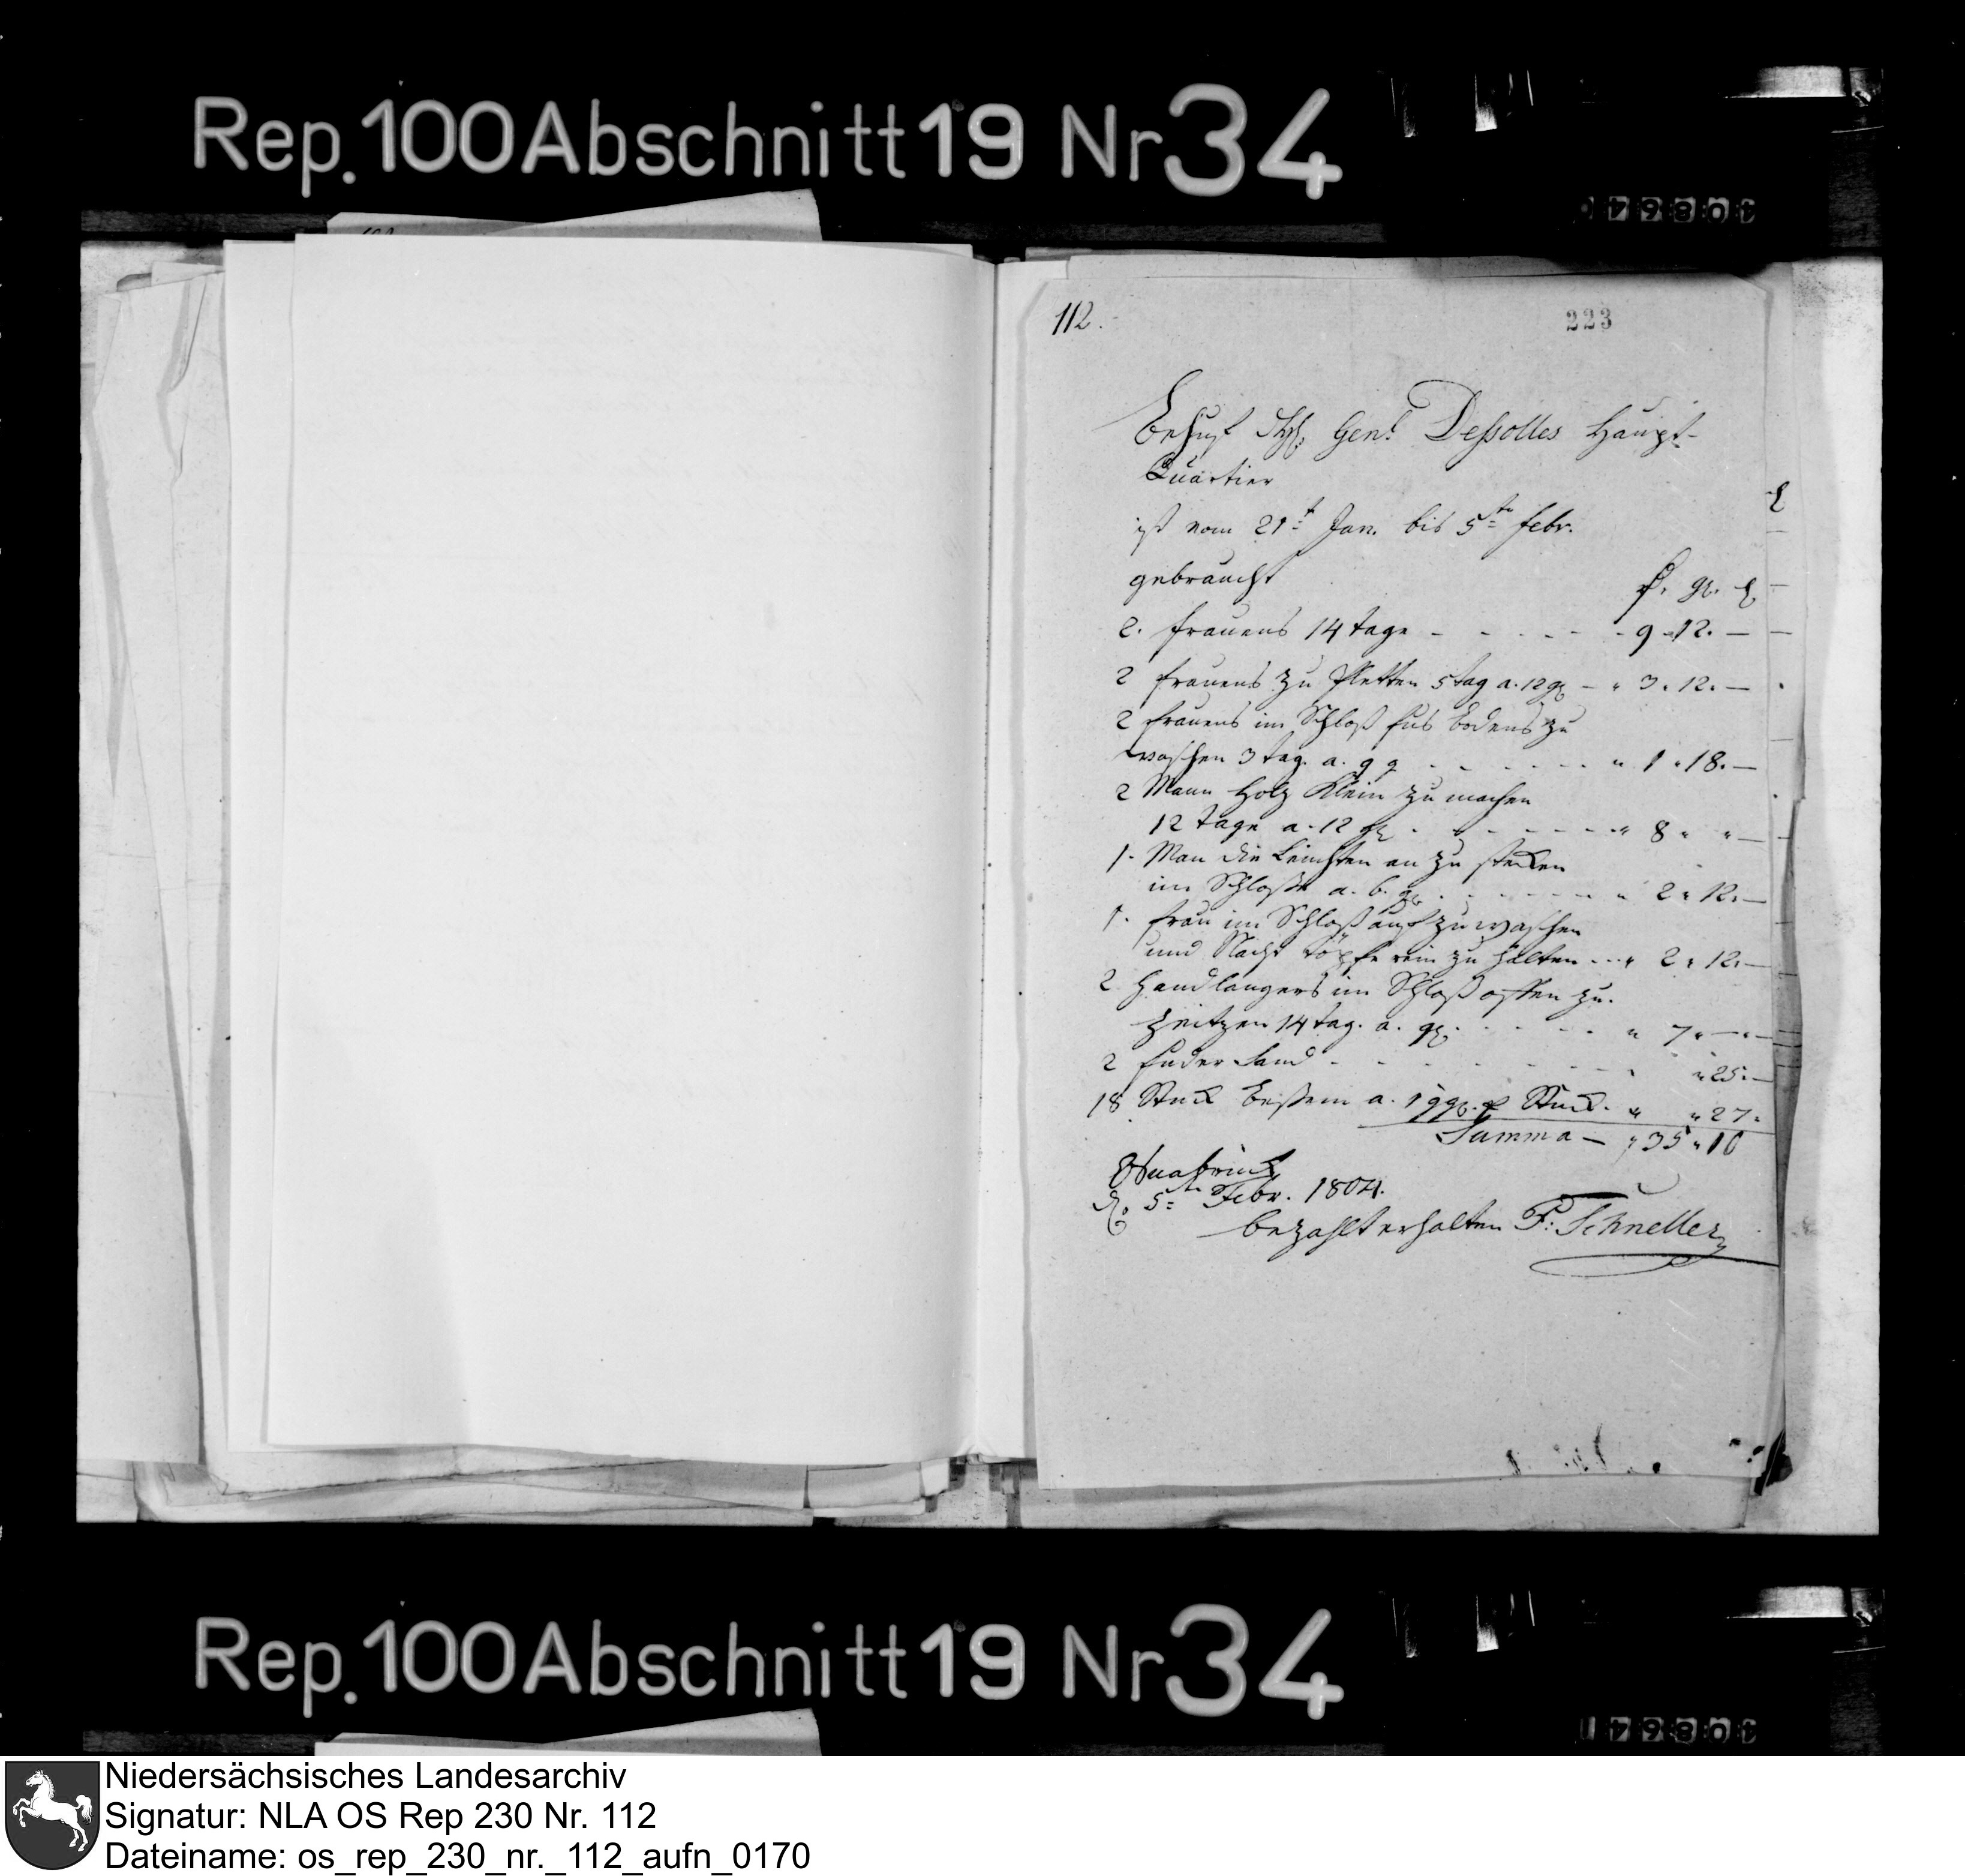 Rep. 100 Abschnitt 19 Nr 34
112.
223
Behuf Genl Dessolles Haupt-
Quartier
ist vom 21t Jan. bis 5ten Febr.
gebraucht
gl.
2. Frauens 14 Tage - - - - - 9 - 12. —
2 Frauens zu Pletten 5 Tag a. 12 gl — " 3. 12. —
2 Frauens im Schloß Fus Bodens zu
waschen 3 Tag. a. 9 g - - - - - " 1 " 18. —
2 Mann Holz Klein zu machen
12 Tage a. 12 gl - - - - - " 8 " " —
1. Man die Leuchten an zu stecken
im Schloße a. 6. gl. - - - - - " 2 " 12. —
1. Frau im Schloß auf zu waschen
und Nacht töpfe rein zu halten - - " 2 " 12. —
2 Handlangers im Schloß offen zu.
heitzen 14 Tag. a. gl. - - - - " 7 " — " —
2 Fuder Sand - - - - - " 25. —
18 Stuck beßem a. 1 ggl. p Stuck. " " 27.
Summa — " 35 " 10
Osnabrück
d. 5ten Febr. 1804.
bezahlt erhalten F: Schneller
Rep. 100 Abschnitt 19 Nr 34
Niedersächsisches Landesarchiv
Signatur: NLA OS Rep 230 Nr. 112
Dateiname: os_rep_230_nr._112_aufn_0170